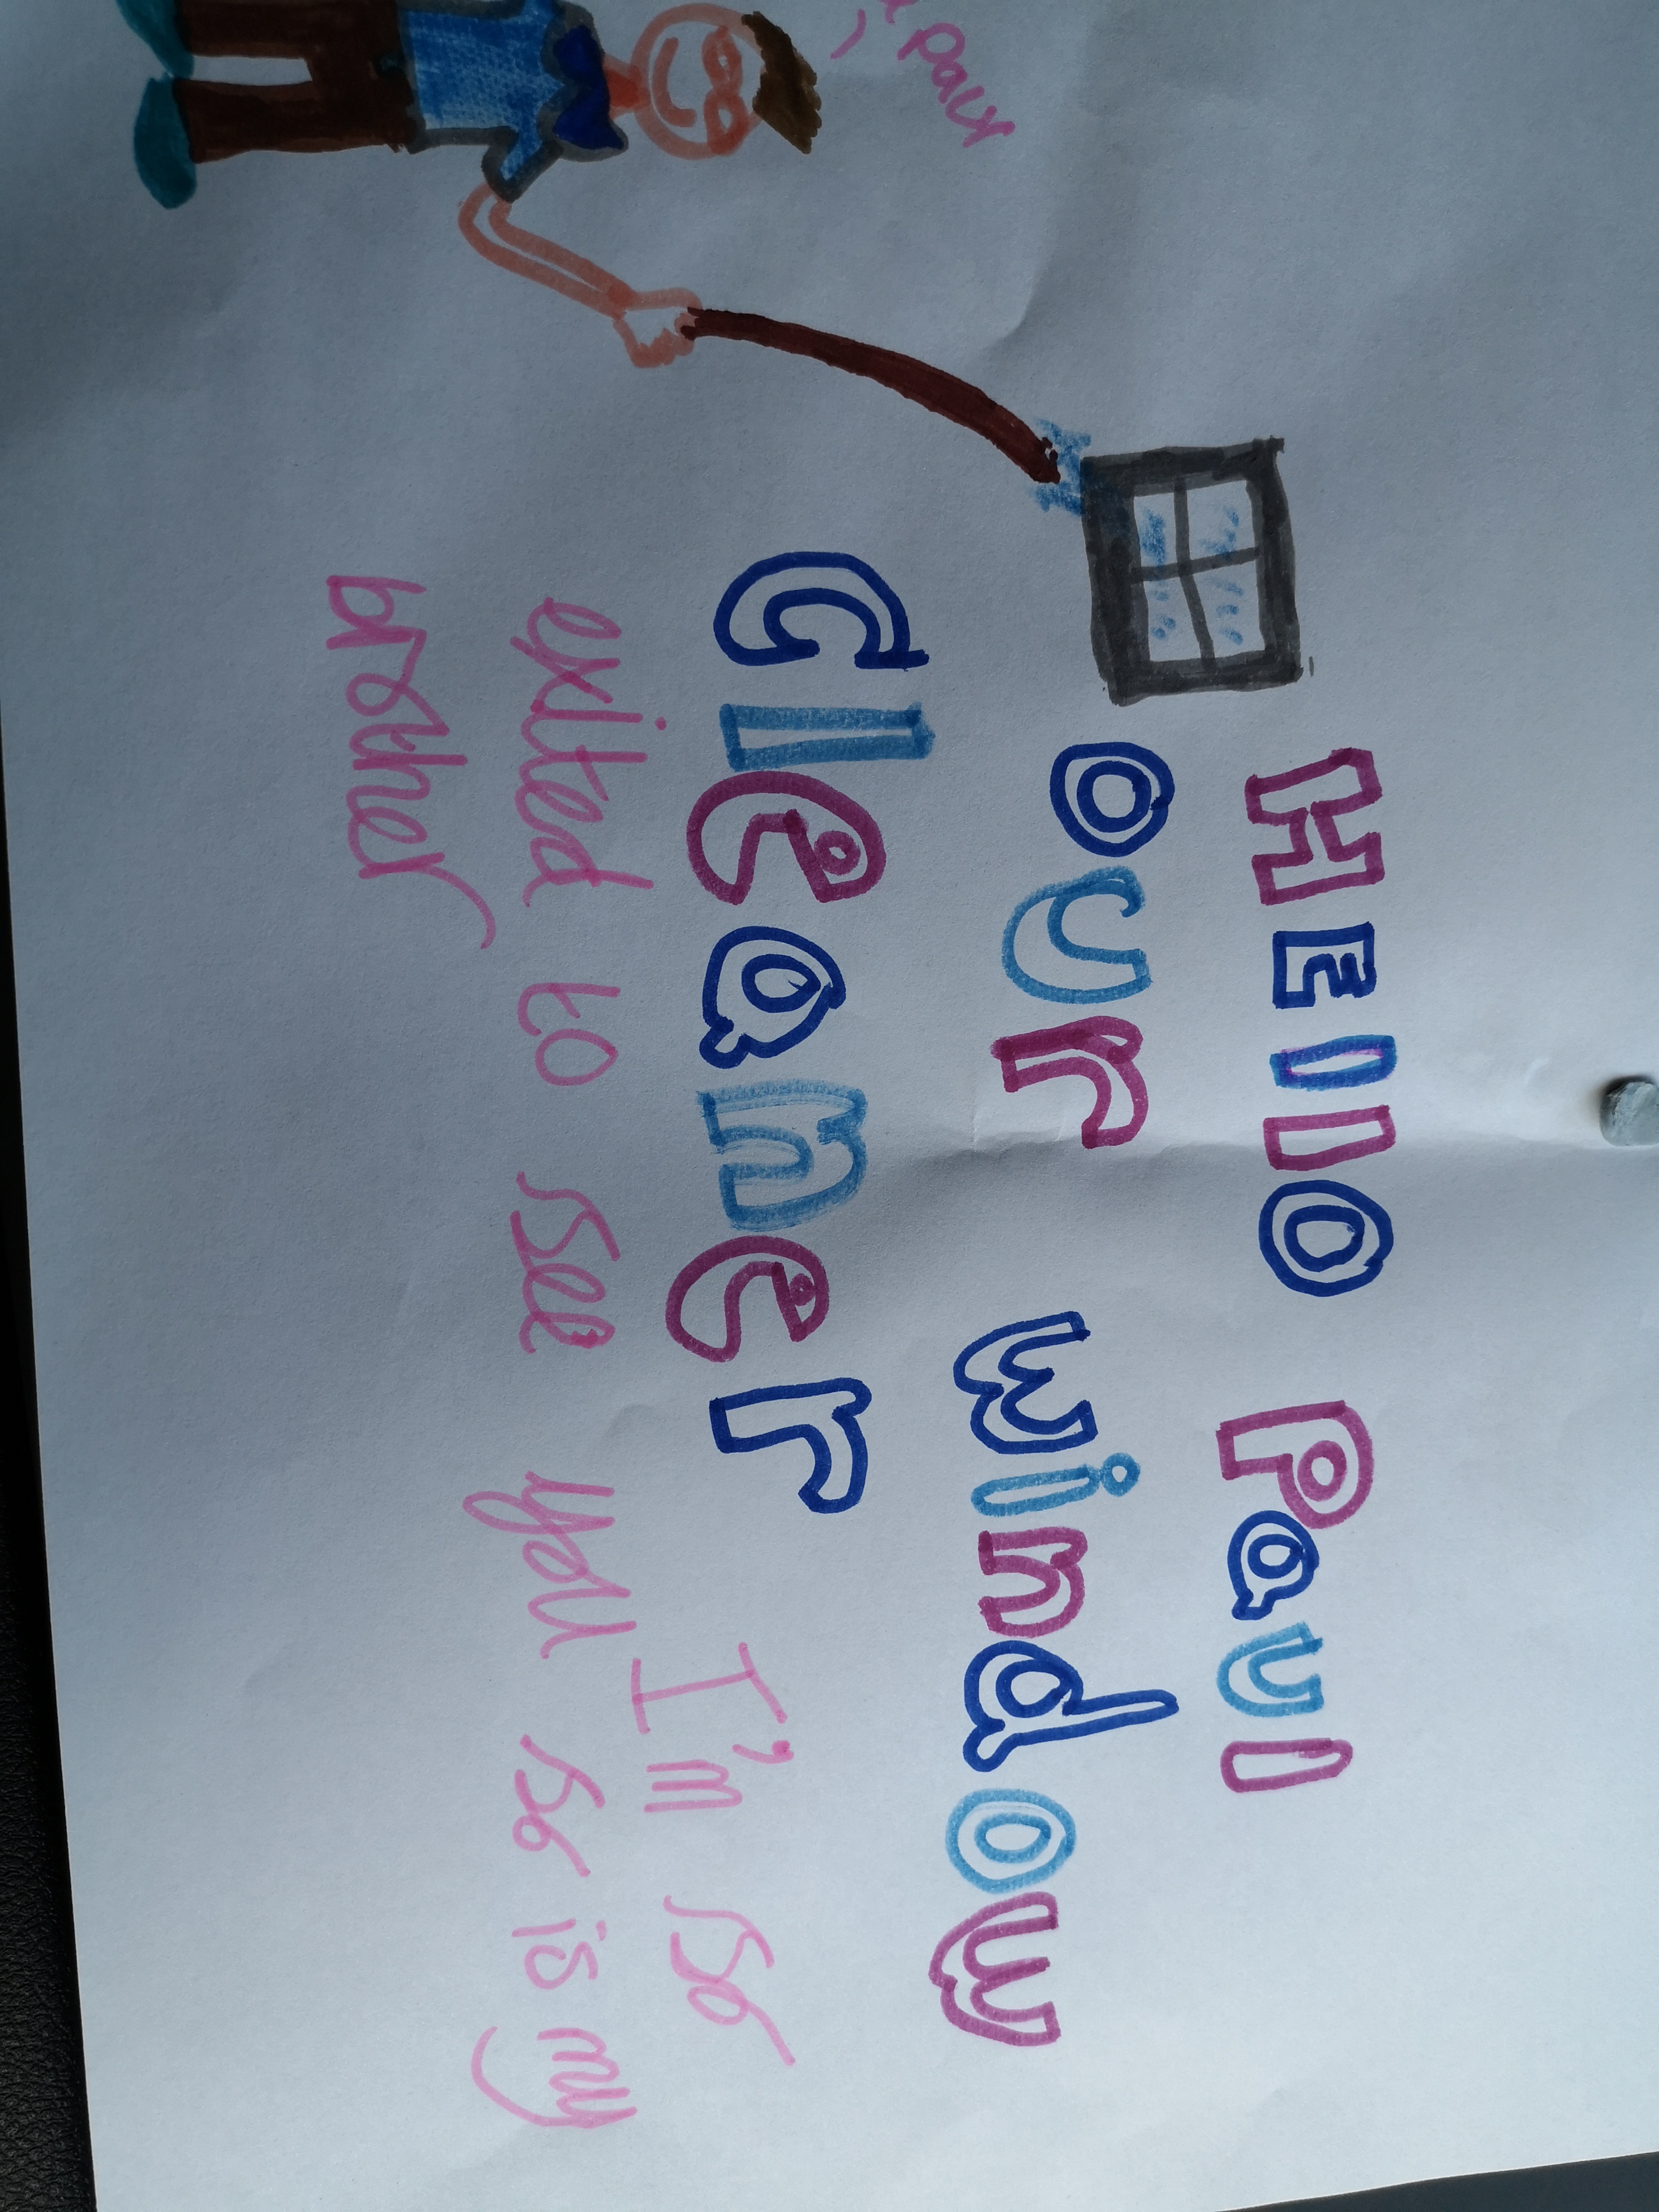 HEllo Paul
our window
Cleaner
I'm so
exited to see you so is my
brother